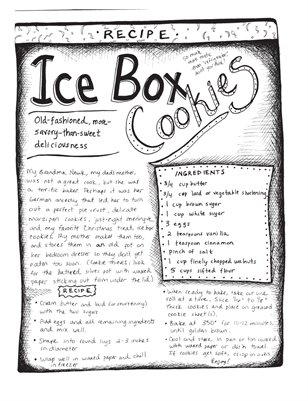 RECIPE
Ice Box
Cookies
Old-fashioned, more-
savory-than-sweet
deliciousness
My Grandma Hawk, my dad's mother,
was not a great cook, but she was
a terrific baker. Perhaps it was her
German ancestry that led her to turn
out a perfect pie crust, delicate
marzipan cookies, just-right meringue,
and my favorite Christmas treat: ice box
cookies. My mother makes them too,
and stores them in an old pot on
her bedroom dresser so they don't get
eaten too soon. (Snake thieves: look
for the battered silver pot with waxed
paper sticking out from under the lid.)
INGREDIENTS
3/4 cup butter
3/4 cup lard or vegetable shortening
1 cup brown sugar
1 cup white sugar
3 eggs
2 teaspoons vanilla
1 teaspoon cinnamon
pinch of salt
1 cup finely chopped walnuts
5 cups sifted flour
RECIPE
• Cream butter and lard (or shortening)
with the two sugars
• Add eggs and all remaining ingredients
and mix well.
• Shape into round logs 2-3 inches
in diameter
• Wrap well in waxed paper and chill
in freezer
• When ready to bake, take out one
roll at a time. Slice 1/8" to 1/4"
thick cookies and place on greased
cookie sheet(s).
• Bake at 350° for 10-12 minutes,
until golden brown.
• Cool and store in pan or tin covered
with waxed paper or dish towel.
If cookies get soft, crisp in oven.
Enjoy!